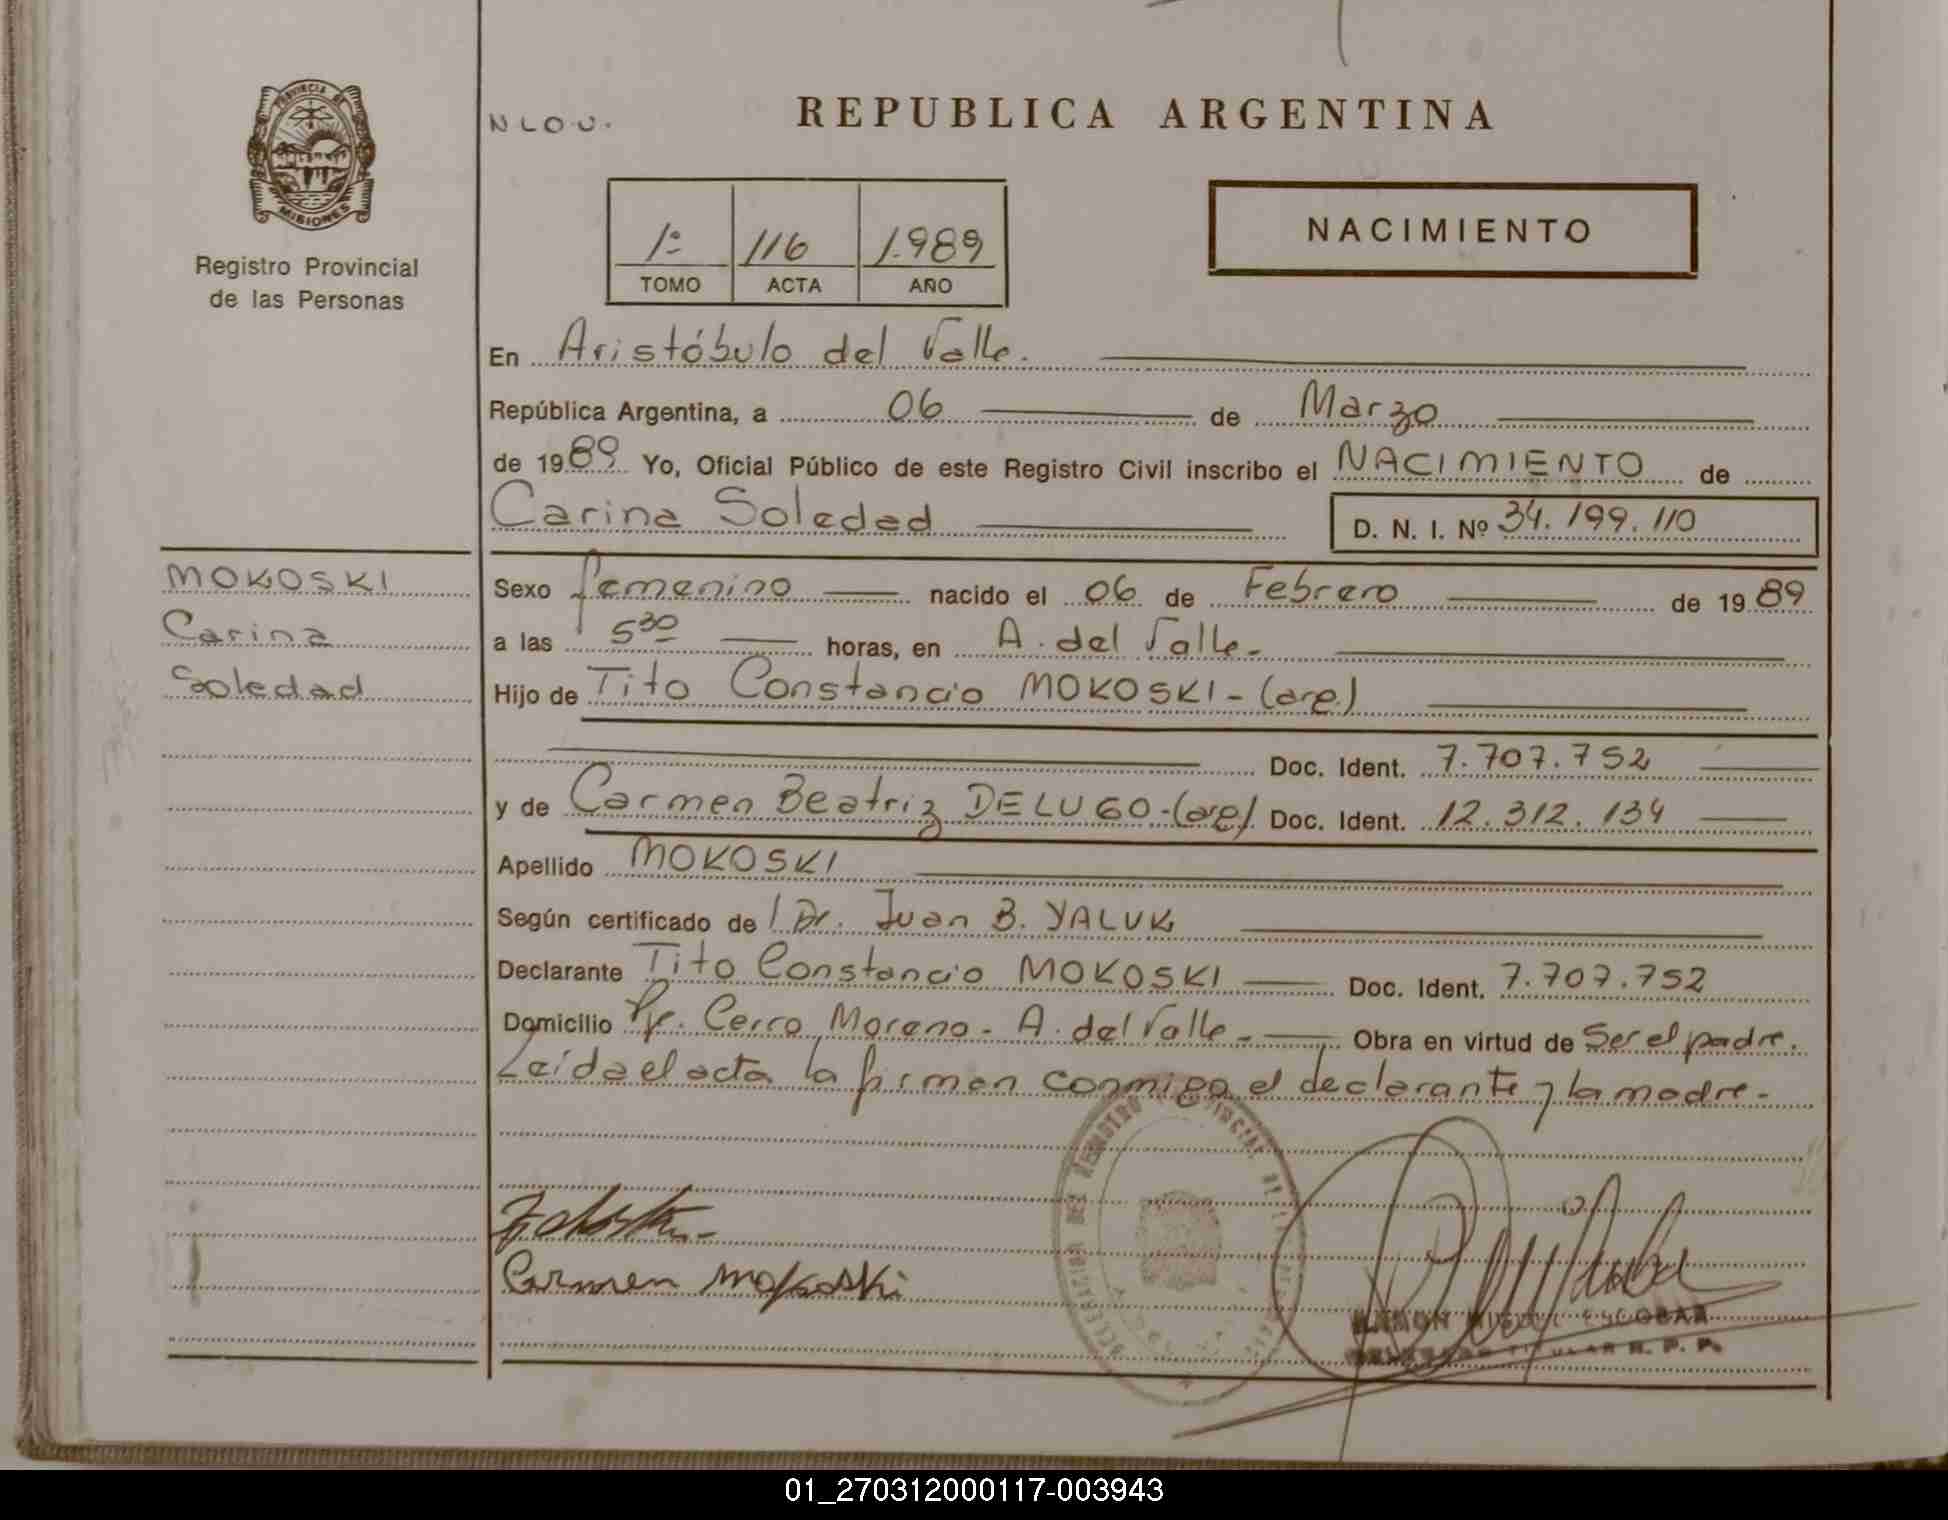 PROVINCIA DE
MISIONES
Registro Provincial
de las Personas
N L O U.
REPUBLICA ARGENTINA
NACIMIENTO
1º 116 1.989
TOMO ACTA AÑO
En Aristóbulo del Valle.
República Argentina, a 06 de Marzo
de 1989 Yo, Oficial Público de este Registro Civil inscribo el NACIMIENTO de
Carina Soledad D. N. I. Nº 34.199.110
MOKOSKI
Carina
Soledad
Sexo femenino nacido el 06 de Febrero de 1989
a las 5 30 horas, en A. del Valle-
Hijo de Tito Constancio MOKOSKI-(arg.)
Doc. Ident. 7.707.752
y de Carmen Beatriz DELUGO-(arg) Doc. Ident. 12.312.134
Apellido MOKOSKI
Según certificado de l Dr. Juan B. YALUK
Declarante Tito Constancio MOKOSKI Doc. Ident. 7.707.752
Domicilio Pje. Cerro Moreno- A. del Valle- Obra en virtud de Ser el padre.
Leída el acta la firman conmigo el declarante y la madre-
Carmen Mokoski
RAMON MIGUEL ESCOBAR
DELEGADO TITULAR R. P. P.
01_270312000117-003943